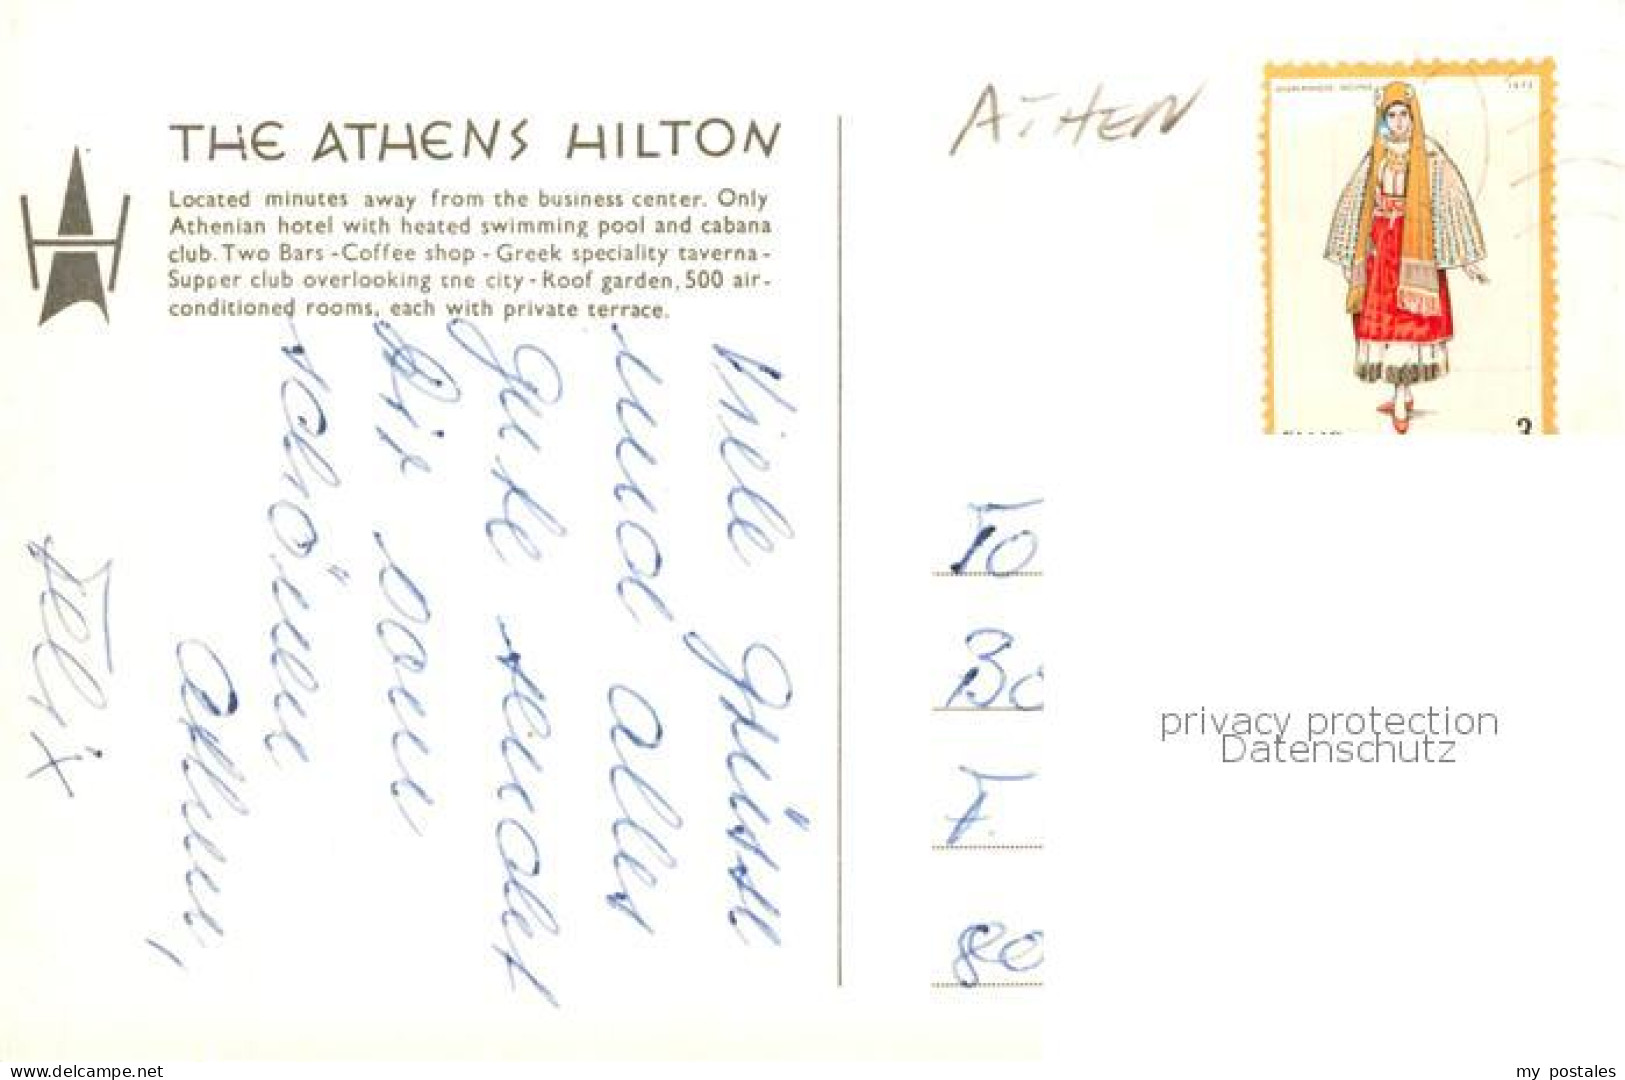 THE ATHENS HILTON
Located minutes away from the business center. Only
Athenian hotel with heated swimming pool and cabana
club. Two Bars - Coffee shop - Greek speciality taverna -
Supper club overlooking the city - Roof garden, 500 air-
conditioned rooms, each with private terrace.
Viele Grüsse
und alles
Gute sendet
Dir vom
schönen
Athen,
Felix
ATHEN
1972
3
Fo
Bo
F.
80
privacy protection
Datenschutz
www.delcampe.net
my_postales